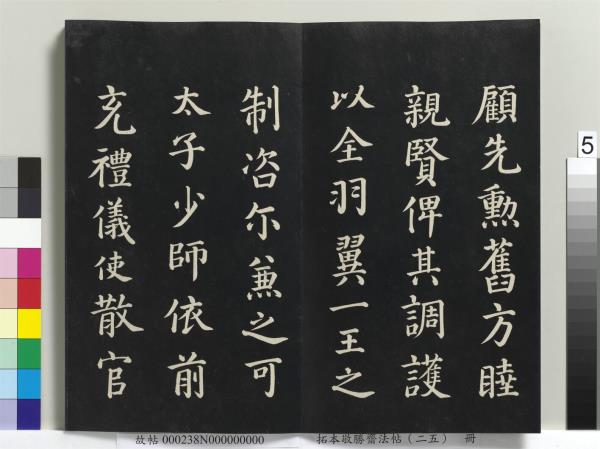 顧先勲舊方睦
親賢俾其調護
以全羽翼一王之
制咨尔兼之可
太子少師依前
充禮儀使散官
5
故帖 000238N000000000 拓本敬勝齋法帖（二五） 冊